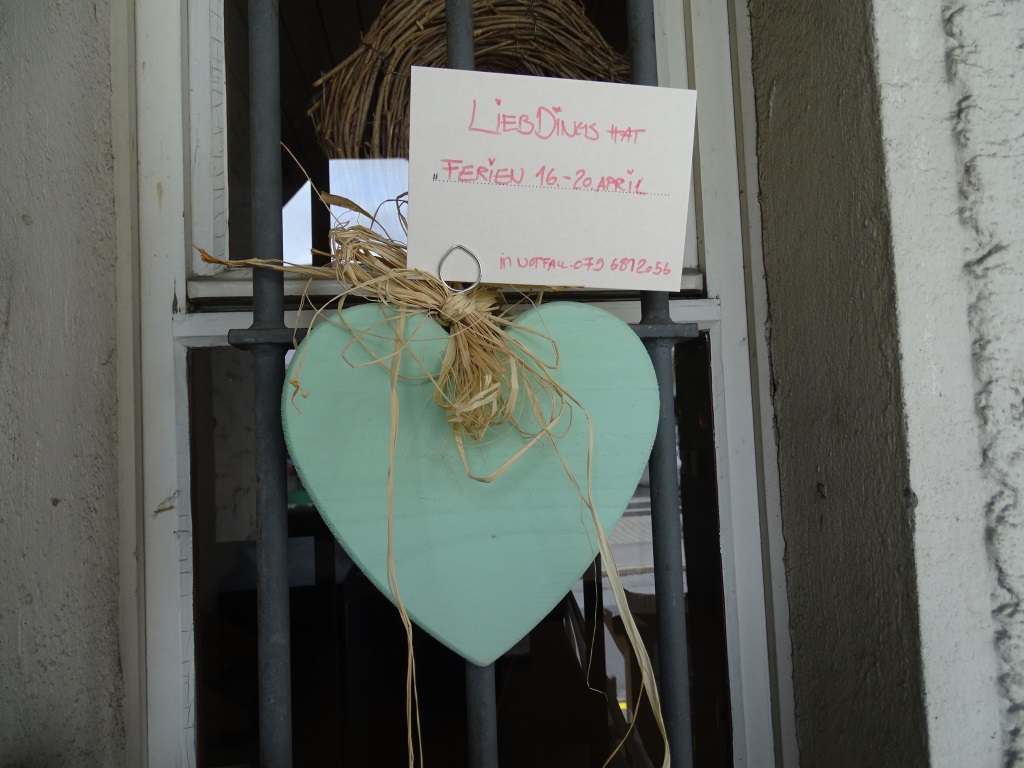 LIEBDINGS HAT
# FERIEN 16.-20.APRIL
in NOTFALL: 079 6812056